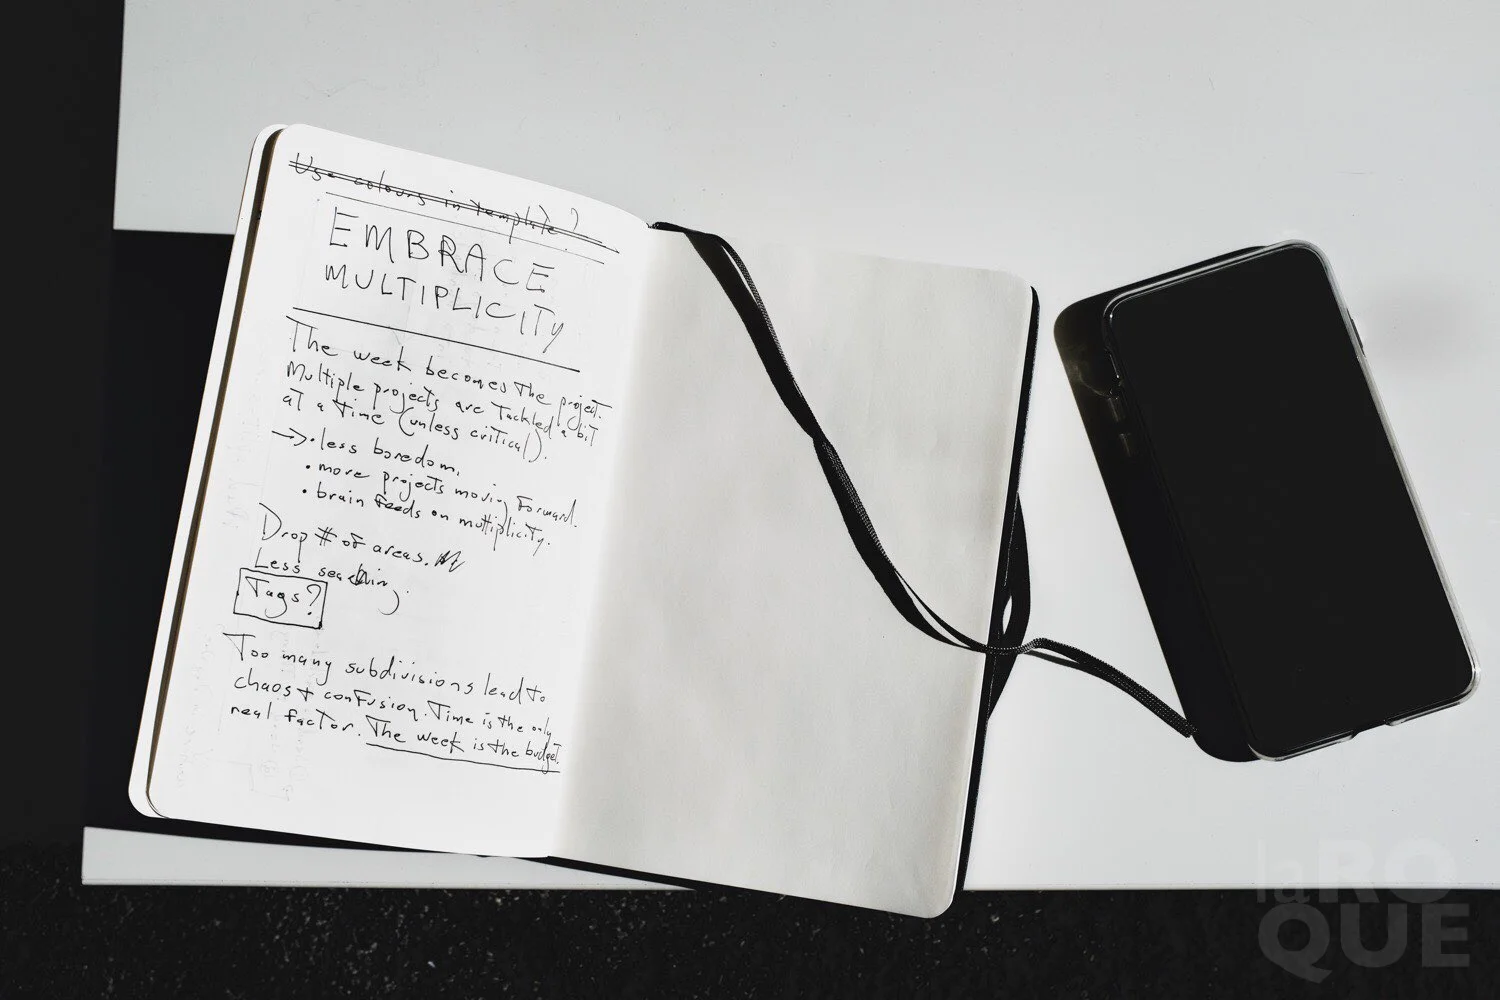 Use colours in template?
EMBRACE
MULTIPLICITY
The week becomes the project.
Multiple projects are tackled a bit
at a time (unless critical).
→ • less boredom.
• more projects moving forward.
• brain feeds on multiplicity.
Drop # of areas.
Less searching.
Tags?
Too many subdivisions lead to
chaos + confusion. Time is the only
real factor. The week is the budget.
laRO
QUE